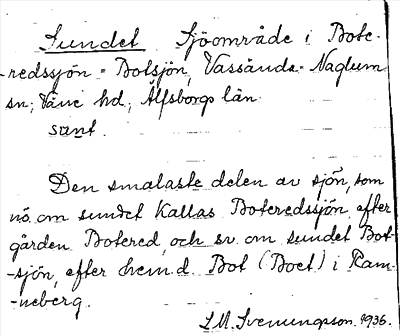 Sundet Sjöområde i Bote-
-redssjön - Botsjön, Vassända-Naglum
sn; Väne hd; Älfsborgs län.
sunt.
Den smalaste delen av sjön, som
nö om sundet kallas Boteredssjön efter
gården Botered, och sv. om sundet Bot-
-sjön, efter hem.d. Bot (Boet) i Ram-
-neberg.
L. M. Svenungsson. 1936.